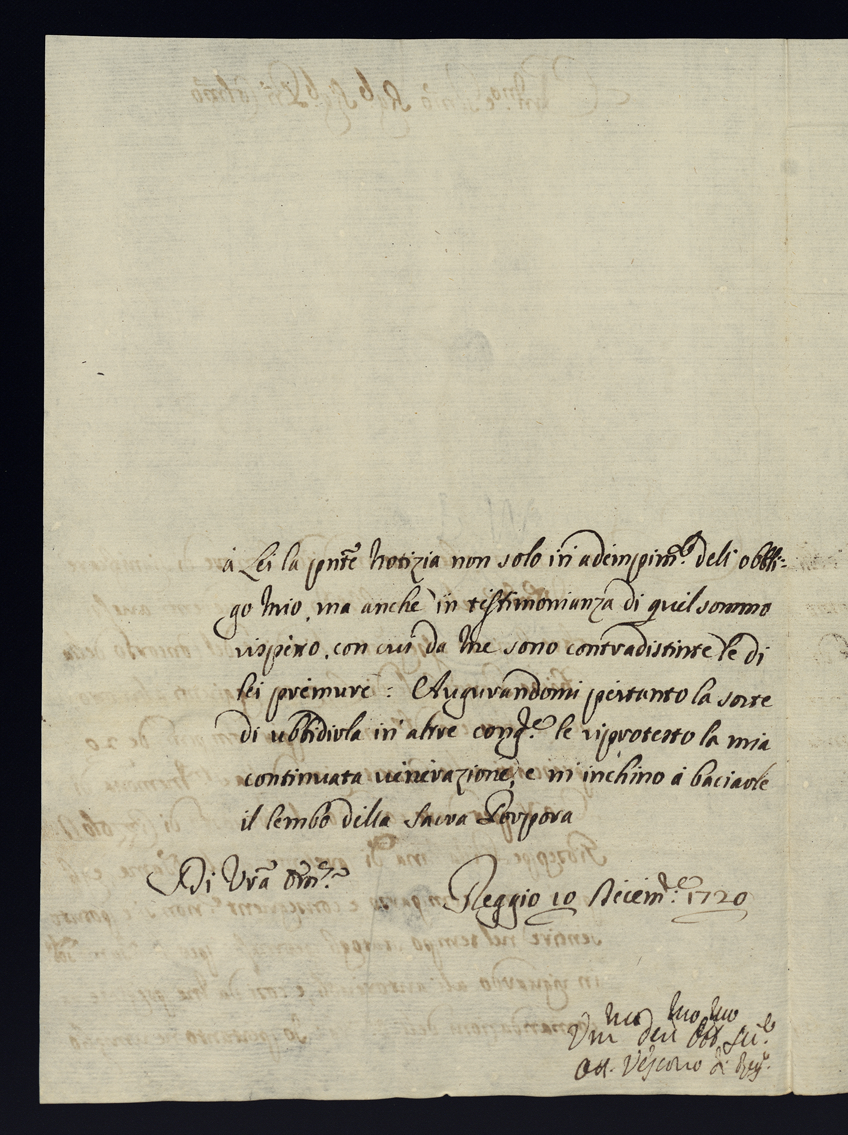 à Lei la pnte Notizia non solo in adempim.to dell obbli-
go mio, ma anche in testimonianza di quel sommo
rispetto, con cui da me sono contradistinte le di
lei premure: Augurandomi pertanto la sorte
di ubbidirla in altre cong.re le riprotesto la mia
continuata venerazione, e m'inchino à baciarle
il lembo della Sacra Porpora
Di Vra Em.za
Reggio 10 Decem.re 1720
Um.mo Dev.mo Obb.mo Ser.
Ott. Vescovo di Regg.